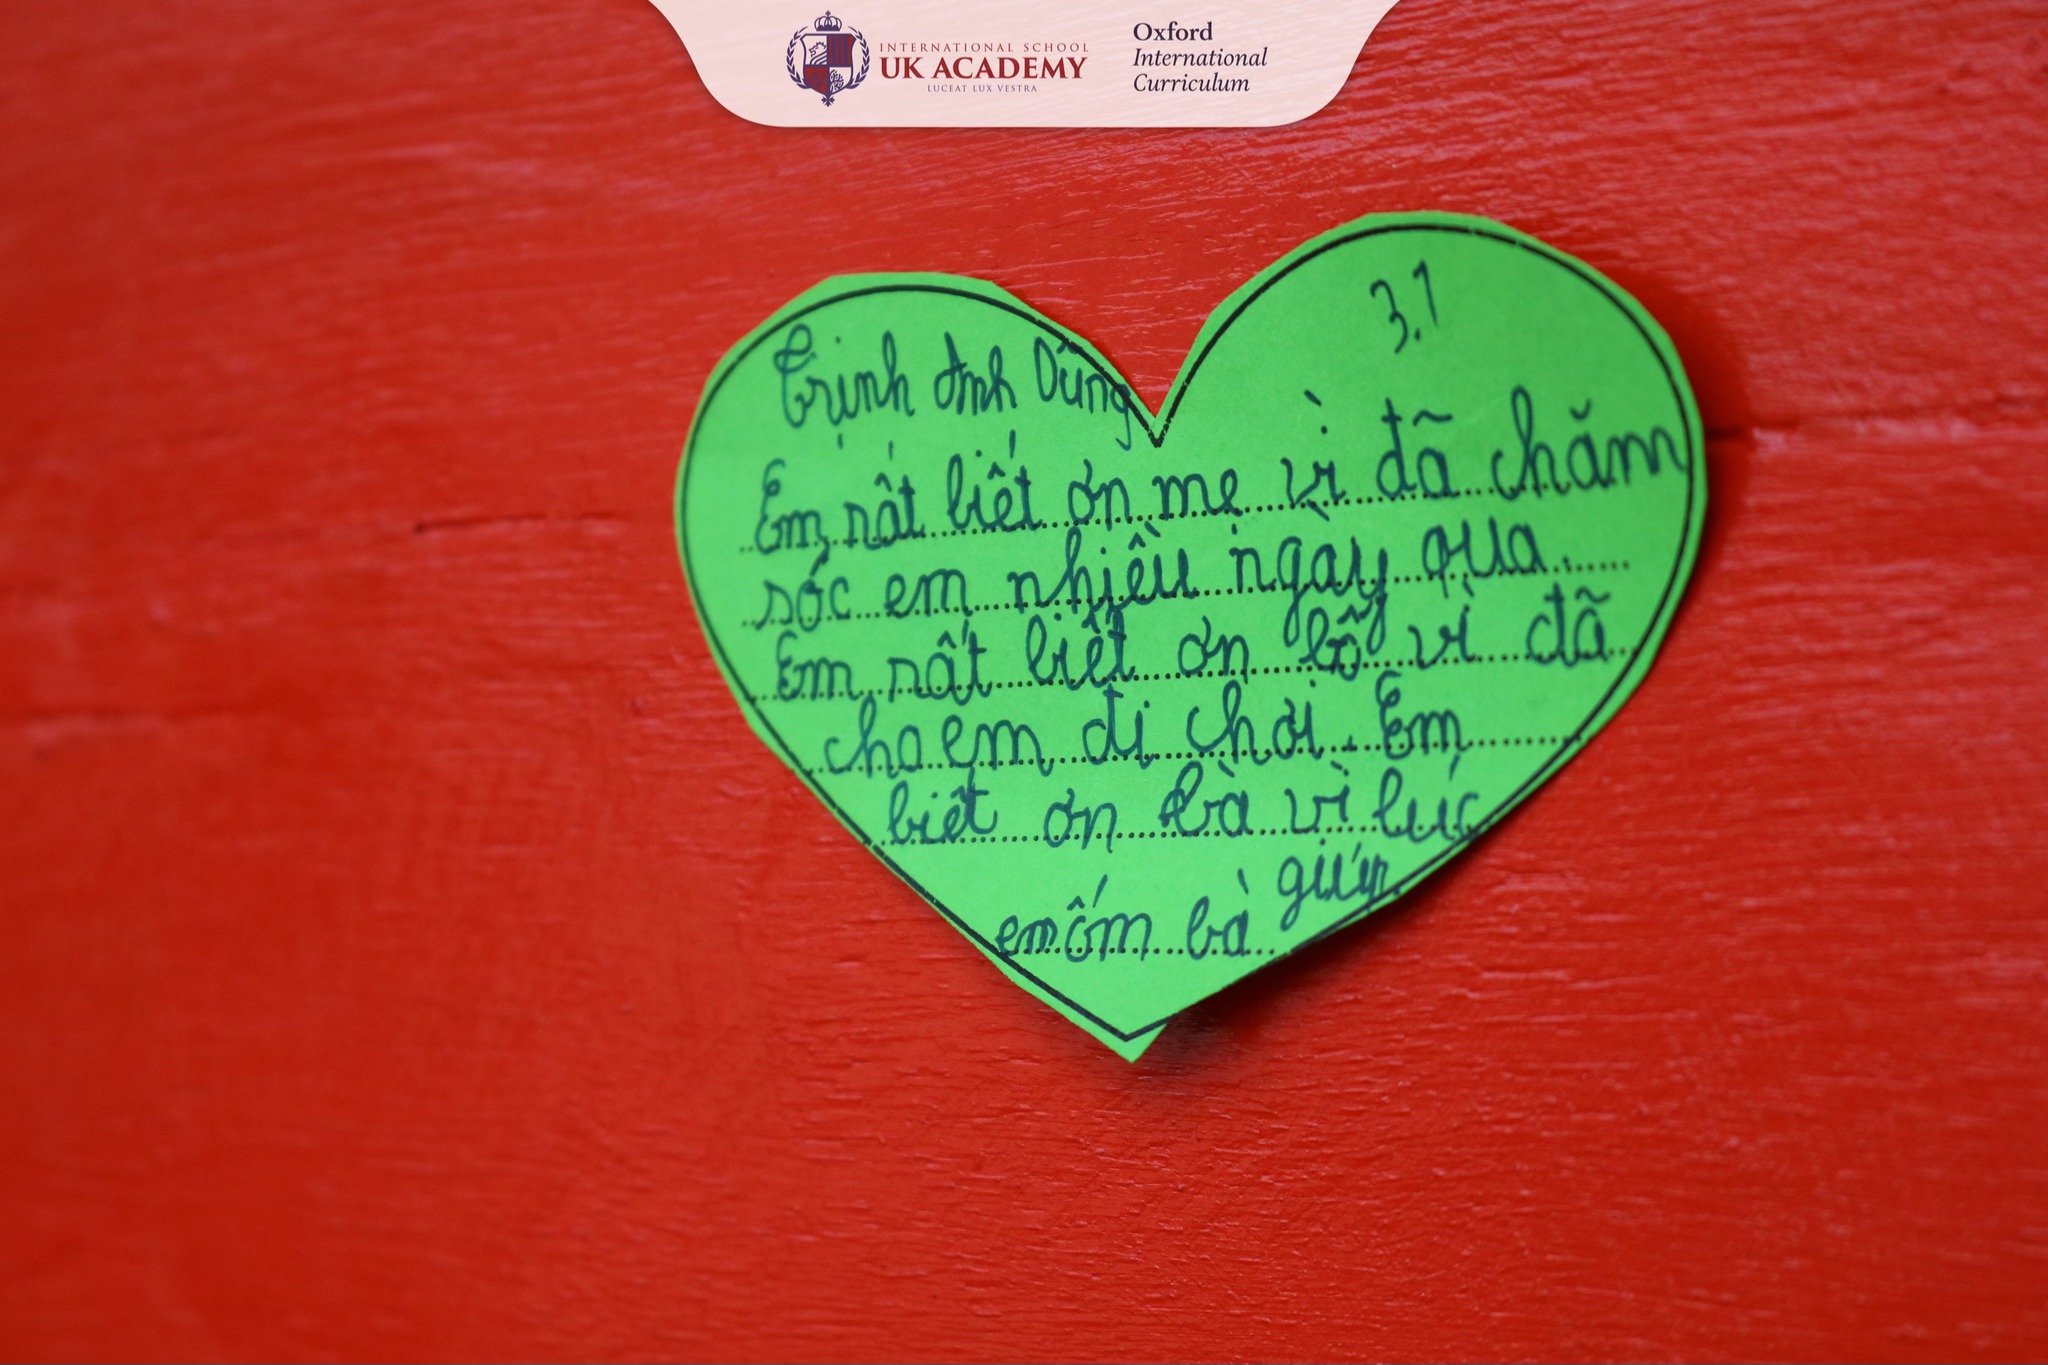 INTERNATIONAL SCHOOL
UK ACADEMY
LUCEAT LUX VESTRA
Oxford
International
Curriculum
3.1
Trịnh Anh Dũng
Em rất biết ơn mẹ vì đã chăm
sóc em nhiều ngày qua.
Em rất biết ơn bố vì đã
cho em đi chơi. Em
biết ơn bà vì lúc
em ốm bà giúp.